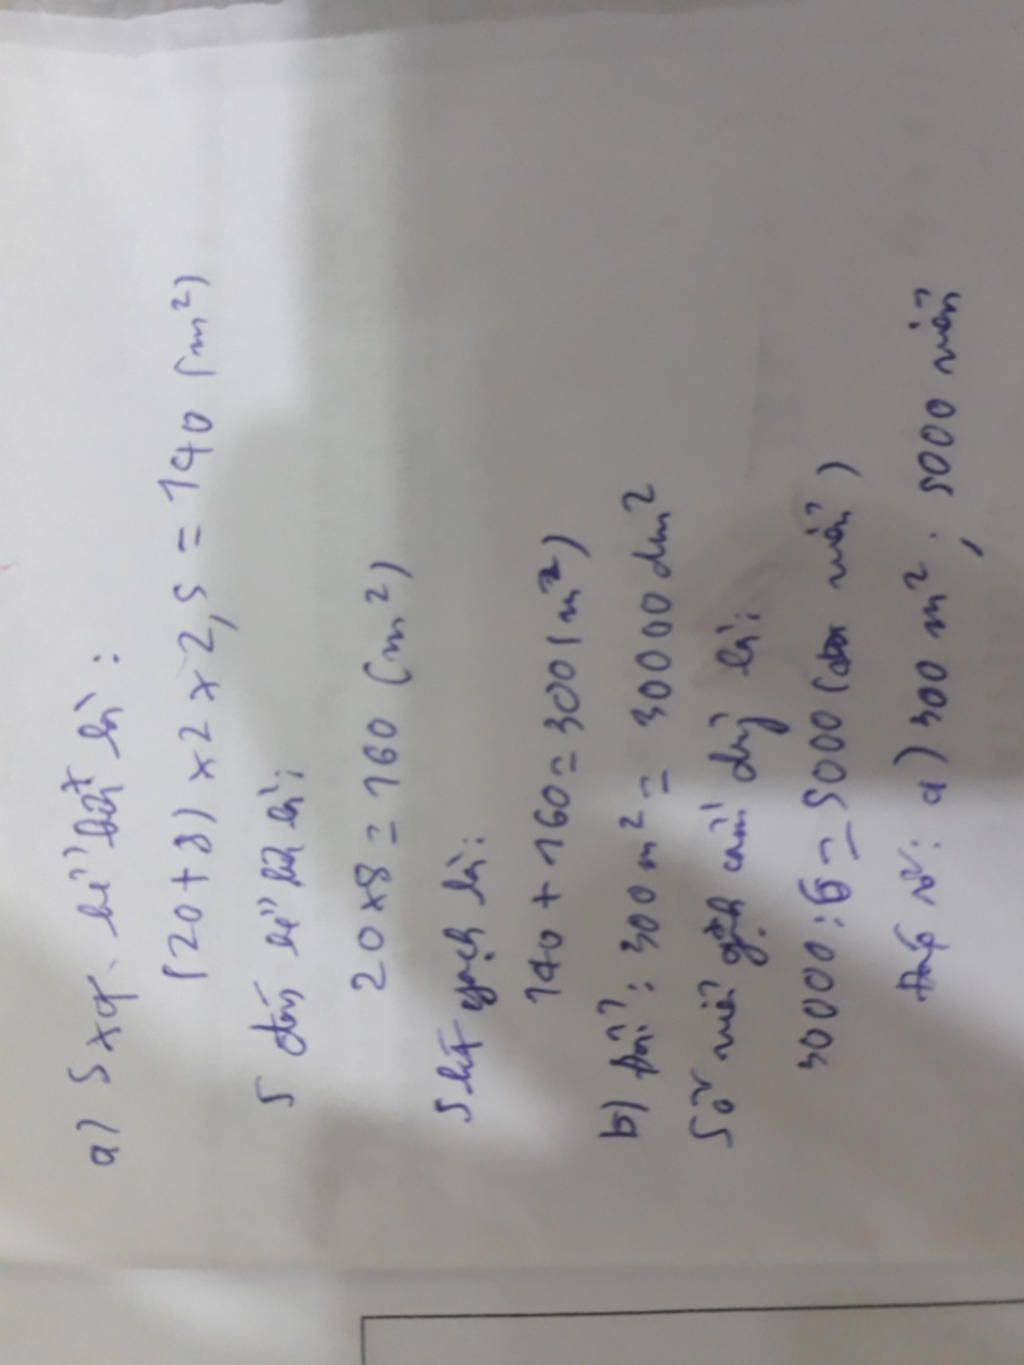 a) Sxq. bể bơi là:
(20+8) x2 x 2,5 = 140 (m²)
S đáy bể là:
20x8 = 160 (m²)
S lát gạch là:
140 + 160 = 300 (m²)
b) Đổi: 300 m² = 30000 dm²
Số viên gạch cần dùng là:
30000:6 = 5000 (viên)
Đáp số: a) 300 m², 5000 viên